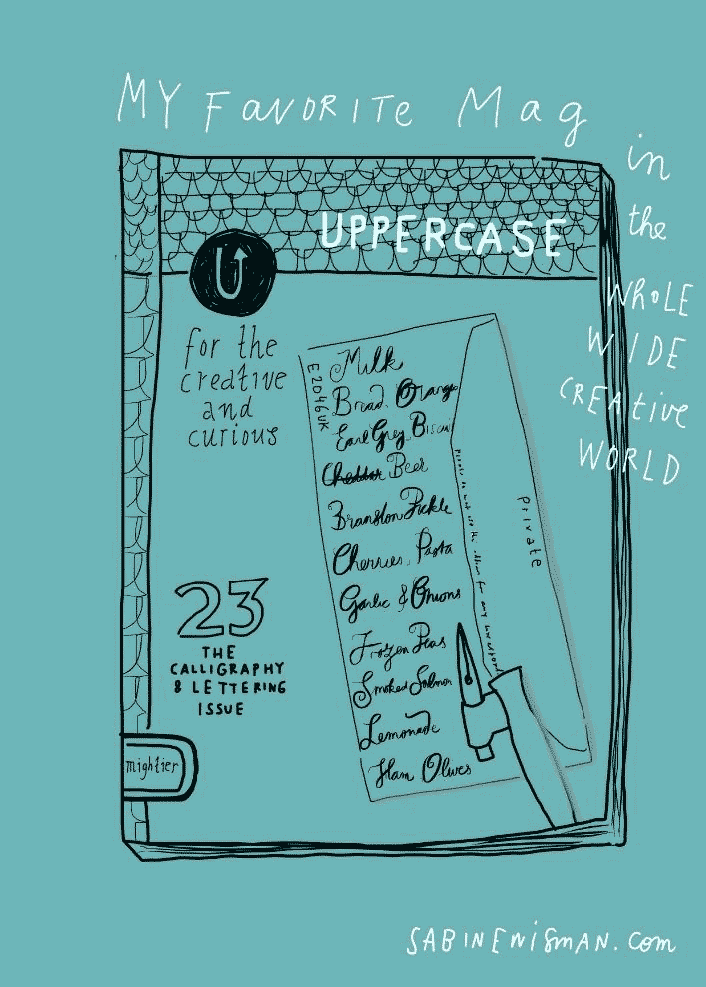 MY FavORITe Mag
in
the
WHoLE
WIDE
CREAtive
WORLD
UPPERCASE
U
for the
creative
and
curious
E2046UK
Milk
Brad. Orange
Earl Grey, Biscui
Cheddar Beer
Branston Pickle
Cherries, Pasta
Garlic & Onions
Frozen Peas
Smoked Salmon
Lemonade
Ham Olives
Private
23
THE
CALLIGRAPHY
& LETTERING
ISSUE
mightier
SABINENISMAN.com